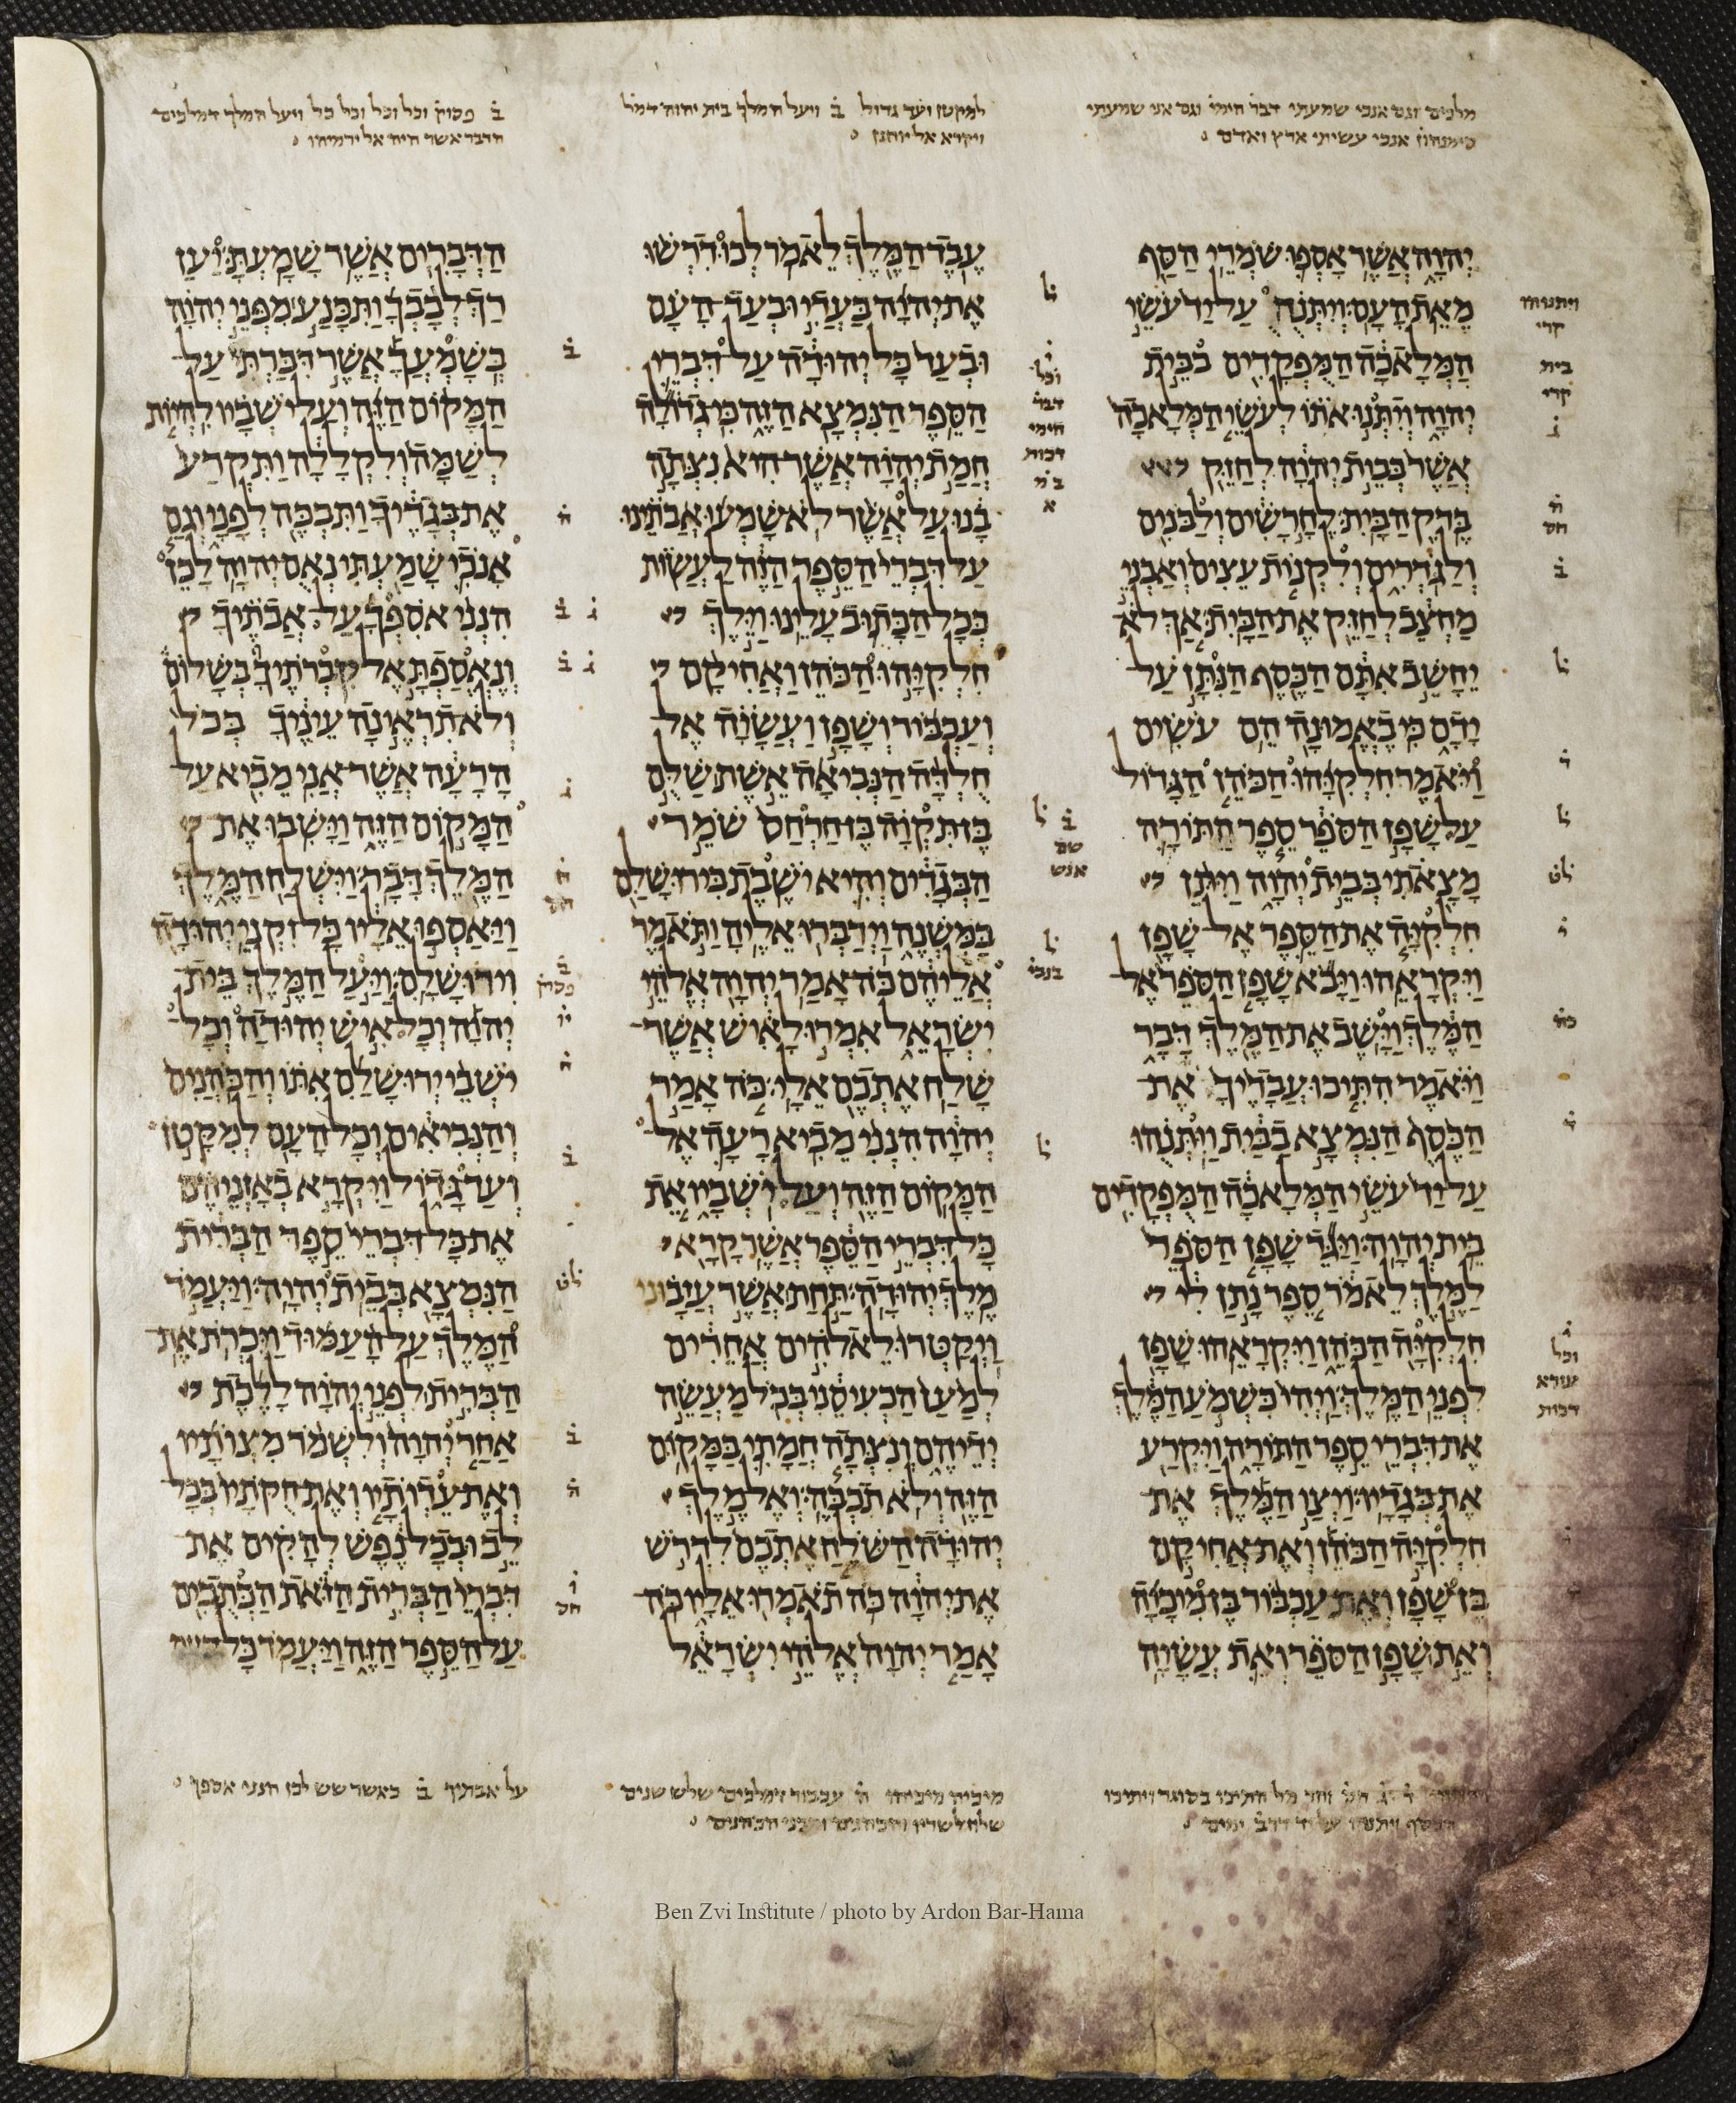 מלכים וגם אנכי שמעתי דבר הימי וגם אני שמעתי
סימנהון אנכי עשיתי ארץ ואדם
למקטן ועד גדול ב ויעל המלך בית יהוה דמל
ויקרא אל יוחנן
ב פסוק וכל וכל וכל כל ויעל המלך דמלכים
הדבר אשר היה אל ירמיהו
יהוה אשר אספו שמרי הסף
מאת העם ויתנה על יד עשי
המלאכה המפקדים בבית
יהוה ויתנו אתו לעשי המלאכה
אשר בבית יהוה לחזק
בדק הבית לחרשים ולבנים
ולגדרים ולקנות עצים ואבני
מחצב לחזק את הבית אך לא
יחשב אתם הכסף הנתן על
ידם כי באמונה הם עשים
ויאמר חלקיהו הכהן הגדול
על שפן הספר ספר התורה
מצאתי בבית יהוה ויתן
חלקיה את הספר אל שפן
ויקראהו ויבא שפן הספר אל
המלך וישב את המלך דבר
ויאמר התיכו עבדיך את
הכסף הנמצא בבית ויתנהו
על יד עשי המלאכה המפקדים
בית יהוה ויגד שפן הספר
למלך לאמר ספר נתן לי
חלקיה הכהן ויקראהו שפן
לפני המלך ויהי כשמע המלך
את דברי ספר התורה ויקרע
את בגדיו ויצו המלך את
חלקיה הכהן ואת אחיקם
בן שפן ואת עכבור בן מיכיה
ואת שפן הספר ואת עשיה
עבד המלך לאמר לכו דרשו
את יהוה בעדי ובעד העם
ובעד כל יהודה על דברי
הספר הנמצא הזה כי גדולה
חמת יהוה אשר היא נצתה
בנו על אשר לא שמעו אבתינו
על דברי הספר הזה לעשות
ככל הכתוב עלינו וילך
חלקיהו הכהן ואחיקם
ועכבור ושפן ועשיה אל
חלדה הנביאה אשת שלם
בן תקוה בן חרחס שמר
הבגדים והיא ישבת בירושלם
במשנה וידברו אליה ותאמר
אליהם כה אמר יהוה אלהי
ישראל אמרו לאיש אשר
שלח אתכם אלי כה אמר
יהוה הנני מביא רעה אל
המקום הזה ועל ישביו את
כל דברי הספר אשר קרא
מלך יהודה תחת אשר עזבוני
ויקטרו לאלהים אחרים
למען הכעיסני בכל מעשה
ידיהם ונצתה חמתי במקום
הזה ולא תכבה ואל מלך
יהודה השלח אתכם לדרש
את יהוה כה תאמרו אליו כה
אמר יהוה אלהי ישראל
הדברים אשר שמעת יען
רך לבבך ותכנע מפני יהוה
בשמעך אשר דברתי על
המקום הזה ועל ישביו להיות
לשמה ולקללה ותקרע
את בגדיך ותבכה לפני וגם
אנכי שמעתי נאם יהוה לכן
הנני אספך על אבתיך
ונאספת אל קברתיך בשלום
ולא תראינה עיניך בכל
הרעה אשר אני מביא על
המקום הזה וישבו את
המלך דבר וישלח המלך
ויאספו אליו כל זקני יהודה
וירושלם ויעל המלך בית
יהוה וכל איש יהודה וכל
ישבי ירושלם אתו והכהנים
והנביאים וכל העם למקטן
ועד גדול ויקרא באזניהם
את כל דברי ספר הברית
הנמצא בבית יהוה ויעמד
המלך על העמוד ויכרת את
הברית לפני יהוה ללכת
אחר יהוה ולשמר מצותיו
ואת עדותיו ואת חקתיו בכל
לב ובכל נפש להקים את
דברי הברית הזאת הכתבים
על הספר הזה ויעמד כל העם
מיכיה מיכיהו ה עכבור דמלכים שלש שנים
על אבתיך ב כאשר שש לכן הנני אספך
Ben Zvi Institute / photo by Ardon Bar-Hama